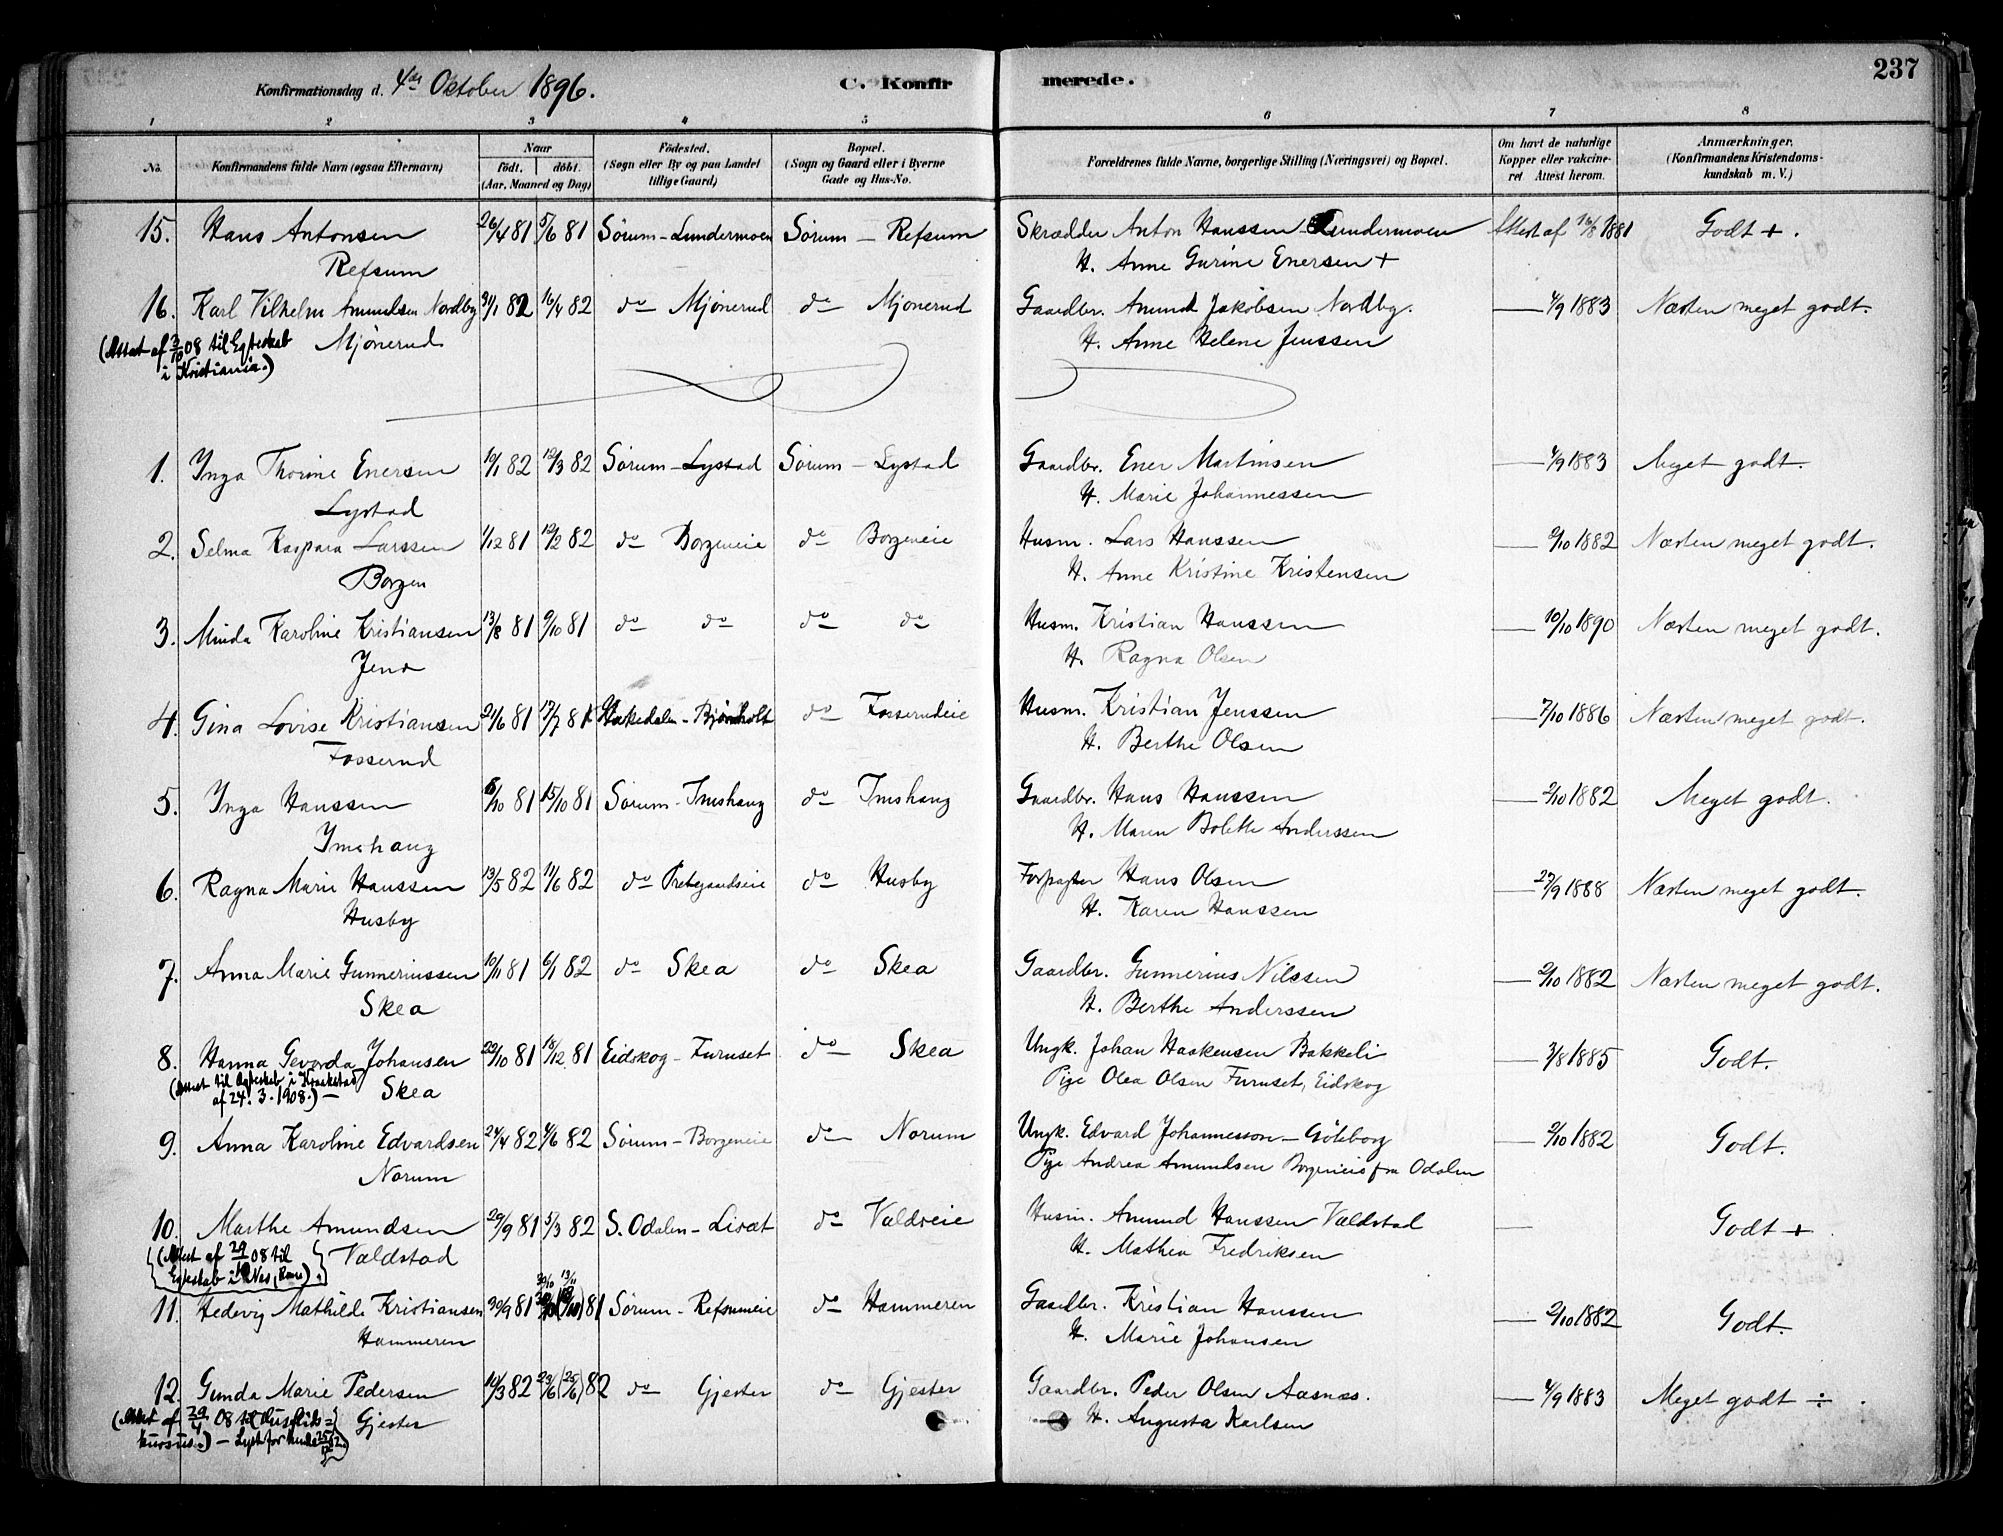 237
Konfirmationsdag d. 4de Oktober 1896. C. Konfirmerede.
1 2 3 4 5 6 7 8
No. Konfirmandens fulde Navn (ogsaa Efternavn) Naar født. døbt. (Aar, Maaned og Dag) Fødested. (Sogn eller By og paa Landet tillige Gaard) Bopæl. (Sogn og Gaard eller i Byerne Gade og Hus-No. Forældrenes fulde Navne, borgerlige Stilling (Næringsvei) og Bopæl. Om havt de naturlige Kopper eller vakcineret Attest herom. Anmærkninger. (Konfirmandens Kristendomskundskab m. V.)
15. Hans Antonsen 26/4 81 5/6 81 Sørum - Lundermoen Sørum - Refsum Skrædder Anton Hanssen Lundermoen Attest af 16/8 1881 Godt + .
Refsum H. Anne Gurine Enersen +
16. Karl Vilhelm Amundsen Nordby 31/1 82 16/4 82 do Mjønerud do Mjønerud Gaardbr. Amund Jakobsen Nordby. — 4/9 1883 Næsten meget godt.
(Attest af 3/10 08 til Egteskab Mjønerud H. Anne Helene Jenssen
i Kristiania.)
1. Inga Thorine Enersen 10/1 82 12/3 82 Sørum - Lystad Sørum - Lystad Gaardbr. Ener Martinsen — 4/9 1883 Meget godt.
Lystad H. Marie Johannessen
2. Selma Kaspara Larssen 1/12 81 12/2 82 do Borgeneie do Borgeneie Husm. Lars Hanssen — 2/10 1882 Næsten meget godt.
Borgen H. Anne Kristine Kristensen
3. Minda Karoline Kristiansen 13/8 81 9/10 81 do do do do Husm. Kristian Hanssen — 10/10 1890 Næsten meget godt.
H. Ragna Olsen
4. Gina Lovise Kristiansen 21/6 81 17/7 81 Hakedalen - Bjørnholt do Fosserudeie Husm. Kristian Jenssen — 7/10 1886 Næsten meget godt.
Fosserud H. Berthe Olsen
5. Inga Hanssen 8/10 81 15/10 81 Sørum - Imshaug do Imshaug Gaardbr. Hans Hanssen — 2/10 1882 Meget godt.
Imshaug H. Maren Bolette Anderssen
6. Ragna Marie Hanssen 13/5 82 11/6 82 do Prestgaardseie do Husby Forpagter Hans Olsen — 27/9 1888 Næsten meget godt.
Husby H. Karen Hanssen
7. Anna Marie Gunneriussen 10/11 81 6/1 82 do Skea do Skea Gaardbr. Gunnerius Nilssen — 2/10 1882 Næsten meget godt.
Skea H. Berthe Anderssen
8. Hanna Geverda Johansen 22/10 81 18/12 81 Eidskog - Furuset do Skea Ungk. Johan Haakensen Bakkeli — 3/8 1885 Godt.
(Attest til Egteskab i Kraakstad Skea Pige Olea Olsen Furuset, Eidskog
af 24. 3. 1908.) —
9. Anna Karoline Edvardsen 24/4 82 4/6 82 Sørum - Borgeneie do Norum Ungk. Edvard Johannesson - Göteborg — 2/10 1882 Godt.
Norum Pige Andrea Amundsen Borgeneie fra Odalen
10. Marthe Amundsen 29/9 81 5/3 82 S. Odalen - Livæt do Valdseie Husm. Amund Hanssen Valdstad — Godt +
(Attest af 29/10 08 til Valdstad H. Mathea Fredriksen
Egteskab i Nes, Rom.)
30/10 13/11
11. Hedevig Mathilde Kristiansen 30/9 81 81 Sørum - Refsumeie do Hammeren Gaardbr. Kristian Hanssen — 2/10 1882 Godt.
Hammeren H. Marie Johansen
12. Gunda Marie Pedersen 14/3 82 23/6 (25/6) 82 do Gjester do Gjester Gaardbr. Peder Olsen Aasnæs. — 4/9 1883 Meget godt ÷ .
(Attest af 29/4 08 til Husflids= Gjester H. Augusta Karlsen
kursus.)